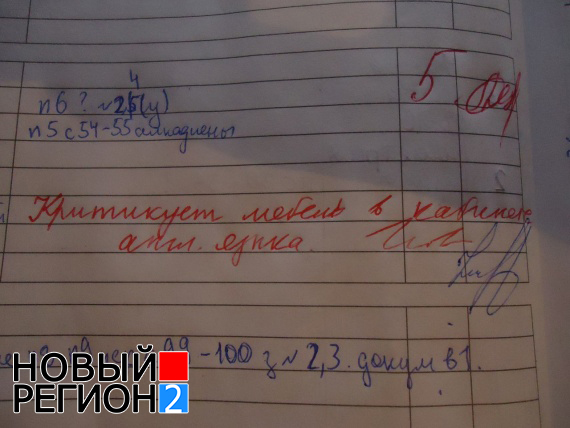 п6? №24(у)
п5 с54-55 алкадиены
5
Критикует мебель в кабинете
англ. языка.
-100 з№2,3. докум в1.
НОВЫЙ
РЕГИОН 2